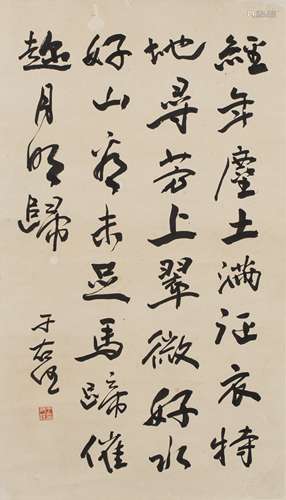 經年塵土滿征衣特
地尋芳上翠微好水
好山看未足馬蹄催
趁月明歸
于右任